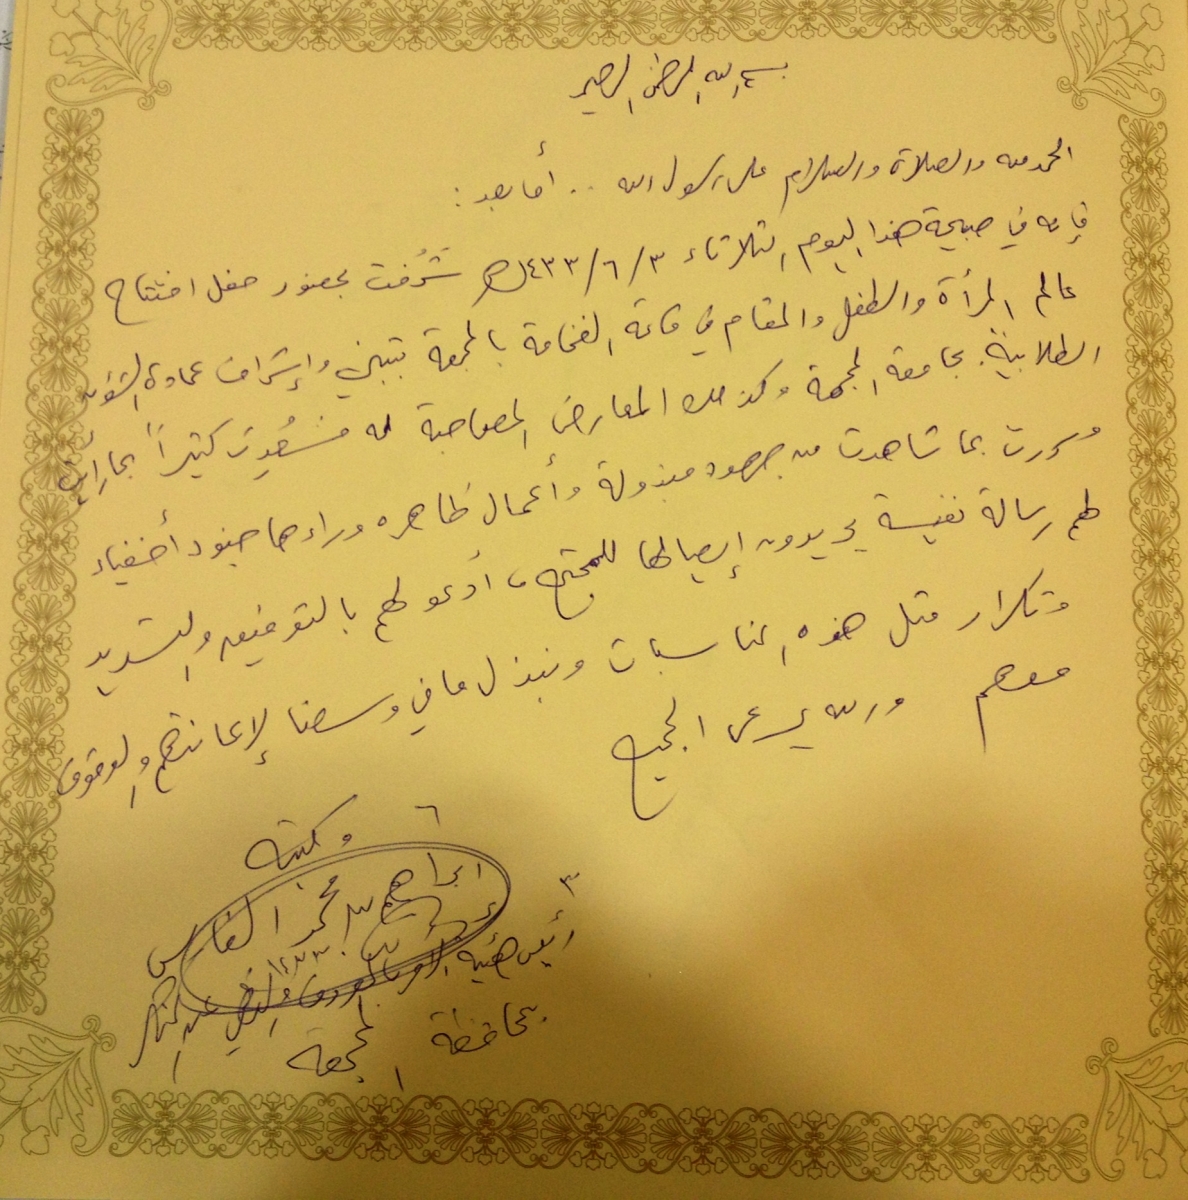 بسم الله الرحمن الرحيم
الحمد لله والصلاة والسلام على رسول الله .. أما بعد :
فإنه في صبيحة هذا اليوم الثلاثاء ١٤٣٣/٦/٣هـ شرُفت بحضور حفل افتتاح
عالم المرأة والطفل والمقام في قاعة الفخامة بالمجمعة بتبني وإشراف عمادة الشؤون
الطلابية بجامعة المجمعة وكذلك المعارض المصاحبة له فسُعِدت كثيراً بما رأيت
وسررت بما شاهدت من جهود مبذولة وأعمال ظاهره وراءها جنود أخفياء
لهم رسالة نفيسة يريدون إيصالها للمجتمع ، أدعو لهم بالتوفيق والتسديد
وتكرار مثل هذه المناسبات ونبذل ما في وسعنا لإعانتهم والوقوف
معهم والله يرعى الجميع
وكتبه
ابراهيم بن محمد الفارس
رئيس هيئة الأمر بالمعروف والنهي عن المنكر
بمحافظة المجمعة